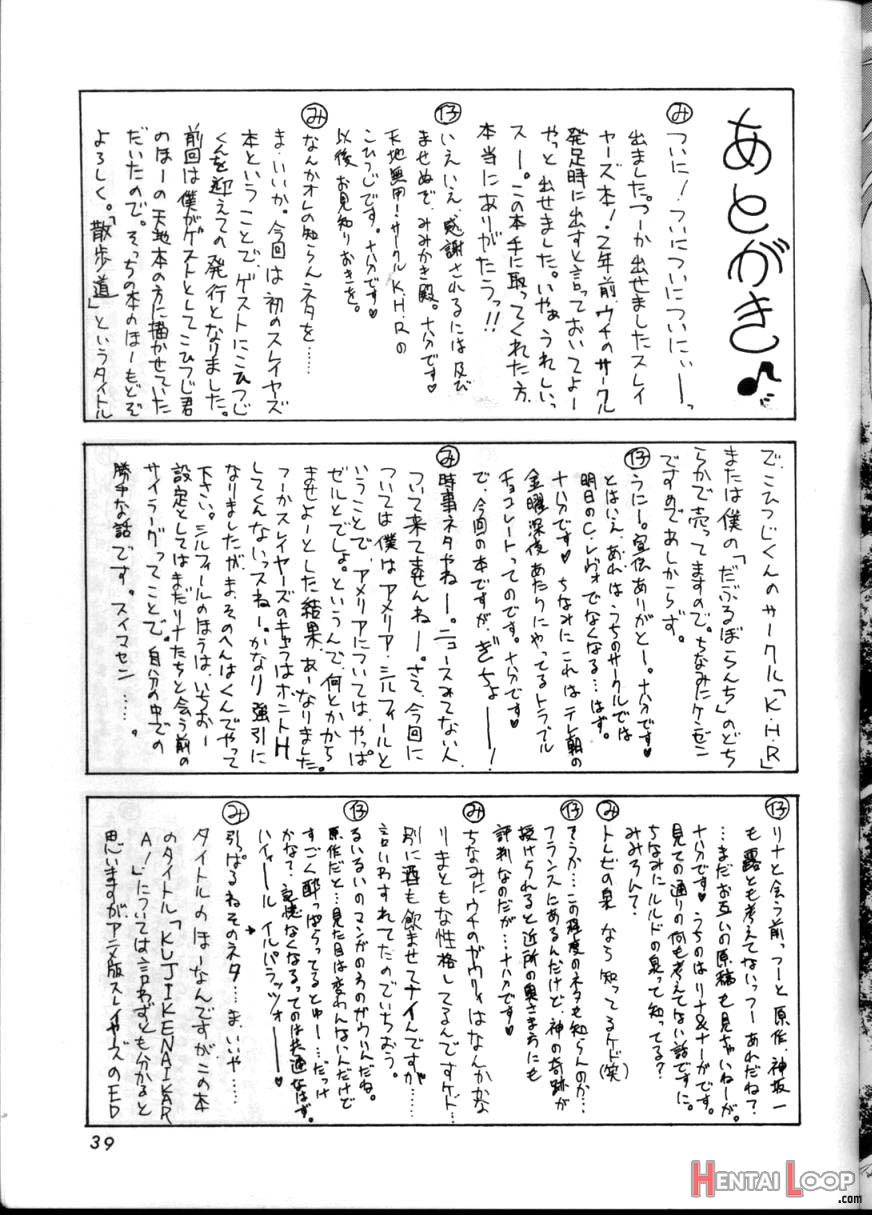 あとがき♪
み ついに!ついについについにぃーーっ
出ました。つーか出せましたスレイ
ヤーズ本!2年前、ウチのサークル
発足時に出すと言っておいてよー
やっと出せました。いやぁ、うれしいっ
スー。この本手に取ってくれた方、
本当にありがたうっ!!
13 いえいえ、感謝されるには及び
ませぬで、みみかき殿。十八分です♥
天地無用!サークルK.H.Rの
こひつじです。十八分です♥
以後、お見知りおきを。
み なんかオレの知らんネタを……
ま・いいか。今回は初のスレイヤーズ
本ということで、ゲストにこひつじ
くんを迎えての発行となりました。
前回は僕がゲストとしてこひつじ君
のほーの天地本の方に描かせていた
だいたので。そっちの本のほーもどーぞ
よろしく。「散歩道」というタイトル
で、こひつじくんのサークル「K・H・R」
または僕の「だぶるぼらんち」のどち
らかで売ってますので。ちなみにケンゼン
ですのであしからず。
13 うにー。宣伝ありがとー。十八分です♥
とはいえ、あれはうちのサークルでは
明日のC.レヴォでなくなる…はず。
十八分です♥ちなみにこれはテレ朝の
金曜深夜あたりにやってるトラブル
チョコレートってのです。十八分です♥
で、今回の本ですが、ぎちょーーー!
み 時事ネタやねー。ニュースみてない人、
ついて来てませんねー。さて、今回に
ついては僕はアメリア・シルフィールと
いうことで、アメリアについては、やっぱ
ゼルとでしょ。というんで、何とかから
ませよーとした結果、あーなりました。
つーかスレイヤーズのキャラはホントH
してくんないっスねー。かなり強引に
なりましたが、ま、そのへんはくんでやって
下さい。シルフィールのほうは、いちおー
設定としてはまだリナたちと会う前の
サイラーグってことで。自分の中での
勝手な話です。スイマセン……。
13 リナと会う前っつーと原作、神坂一
も露とも考えてないっつーあれだね?
…まだお互いの原稿も見ちゃいねーが。
十八分です♥うちのはリナ&ナーガです。
見ての通りの何も考えてない話ですに。
ちなみにルルドの泉って知ってる?
みみろんて?
み トレビの泉なら知ってるケド(笑)
13 そうか…この程度のネタも知らんのか…
フランスにあるんだけど、神の奇跡が
授けられると近所の奥さまがたにも
評判なのだが…十八分です♥
み ちなみにウチのガウリィはなんかかな
りまともな性格してるんですケド…
別に酒も飲ませてナイんですが……
言いわすれてたのでいちおう。
13 るいるいのマンガのあのガウリィだね。
原作だと…見た目は変わんないんだけど
すごく酔っぱらってるとゅー…だっけ
かな?記憶なくなるってのは共通なはず。
ハイィール イルパラッツォーーー
み 引っぱるねそのネタ…ま、いいや……
タイトルのほーなんですが、この本
のタイトル「KUJIKENAIKAR
A!」については言わずとも分かると
思いますがアニメ版スレイヤーズのED
39
HENTAI LOOP
.com